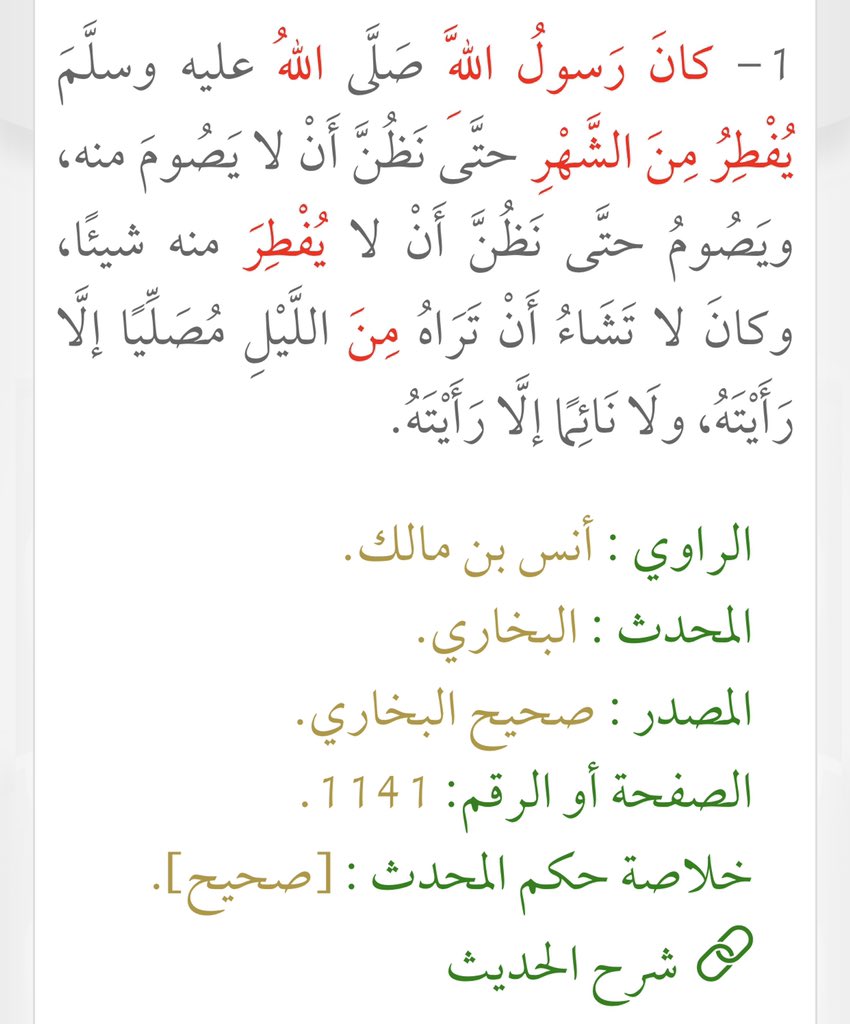 1- كانَ رَسولُ اللَّهِ صَلَّى اللهُ عليه وسلَّمَ
يُفْطِرُ مِنَ الشَّهْرِ حتَّى نَظُنَّ أَنْ لا يَصُومَ منه،
ويَصُومُ حتَّى نَظُنَّ أَنْ لا يُفْطِرَ منه شيئًا،
وكانَ لا تَشَاءُ أَنْ تَرَاهُ مِنَ اللَّيْلِ مُصَلِّيًا إلَّا
رَأَيْتَهُ، ولَا نَائِمًا إلَّا رَأَيْتَهُ.
الراوي : أنس بن مالك.
المحدث : البخاري.
المصدر : صحيح البخاري.
الصفحة أو الرقم: 1141.
خلاصة حكم المحدث : [صحيح].
شرح الحديث